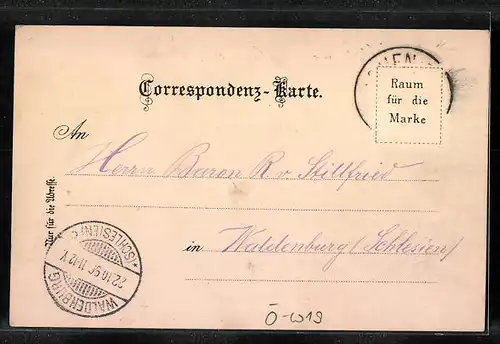 Correspondenz-Karte.
Raum
für die
Marke
An
Herrn Baron R v Stillfried
Nur für die Adresse.
in Waldenburg (Schlesien)
*(SCHLESIEN) c
WALDENBURG
Ö-W19